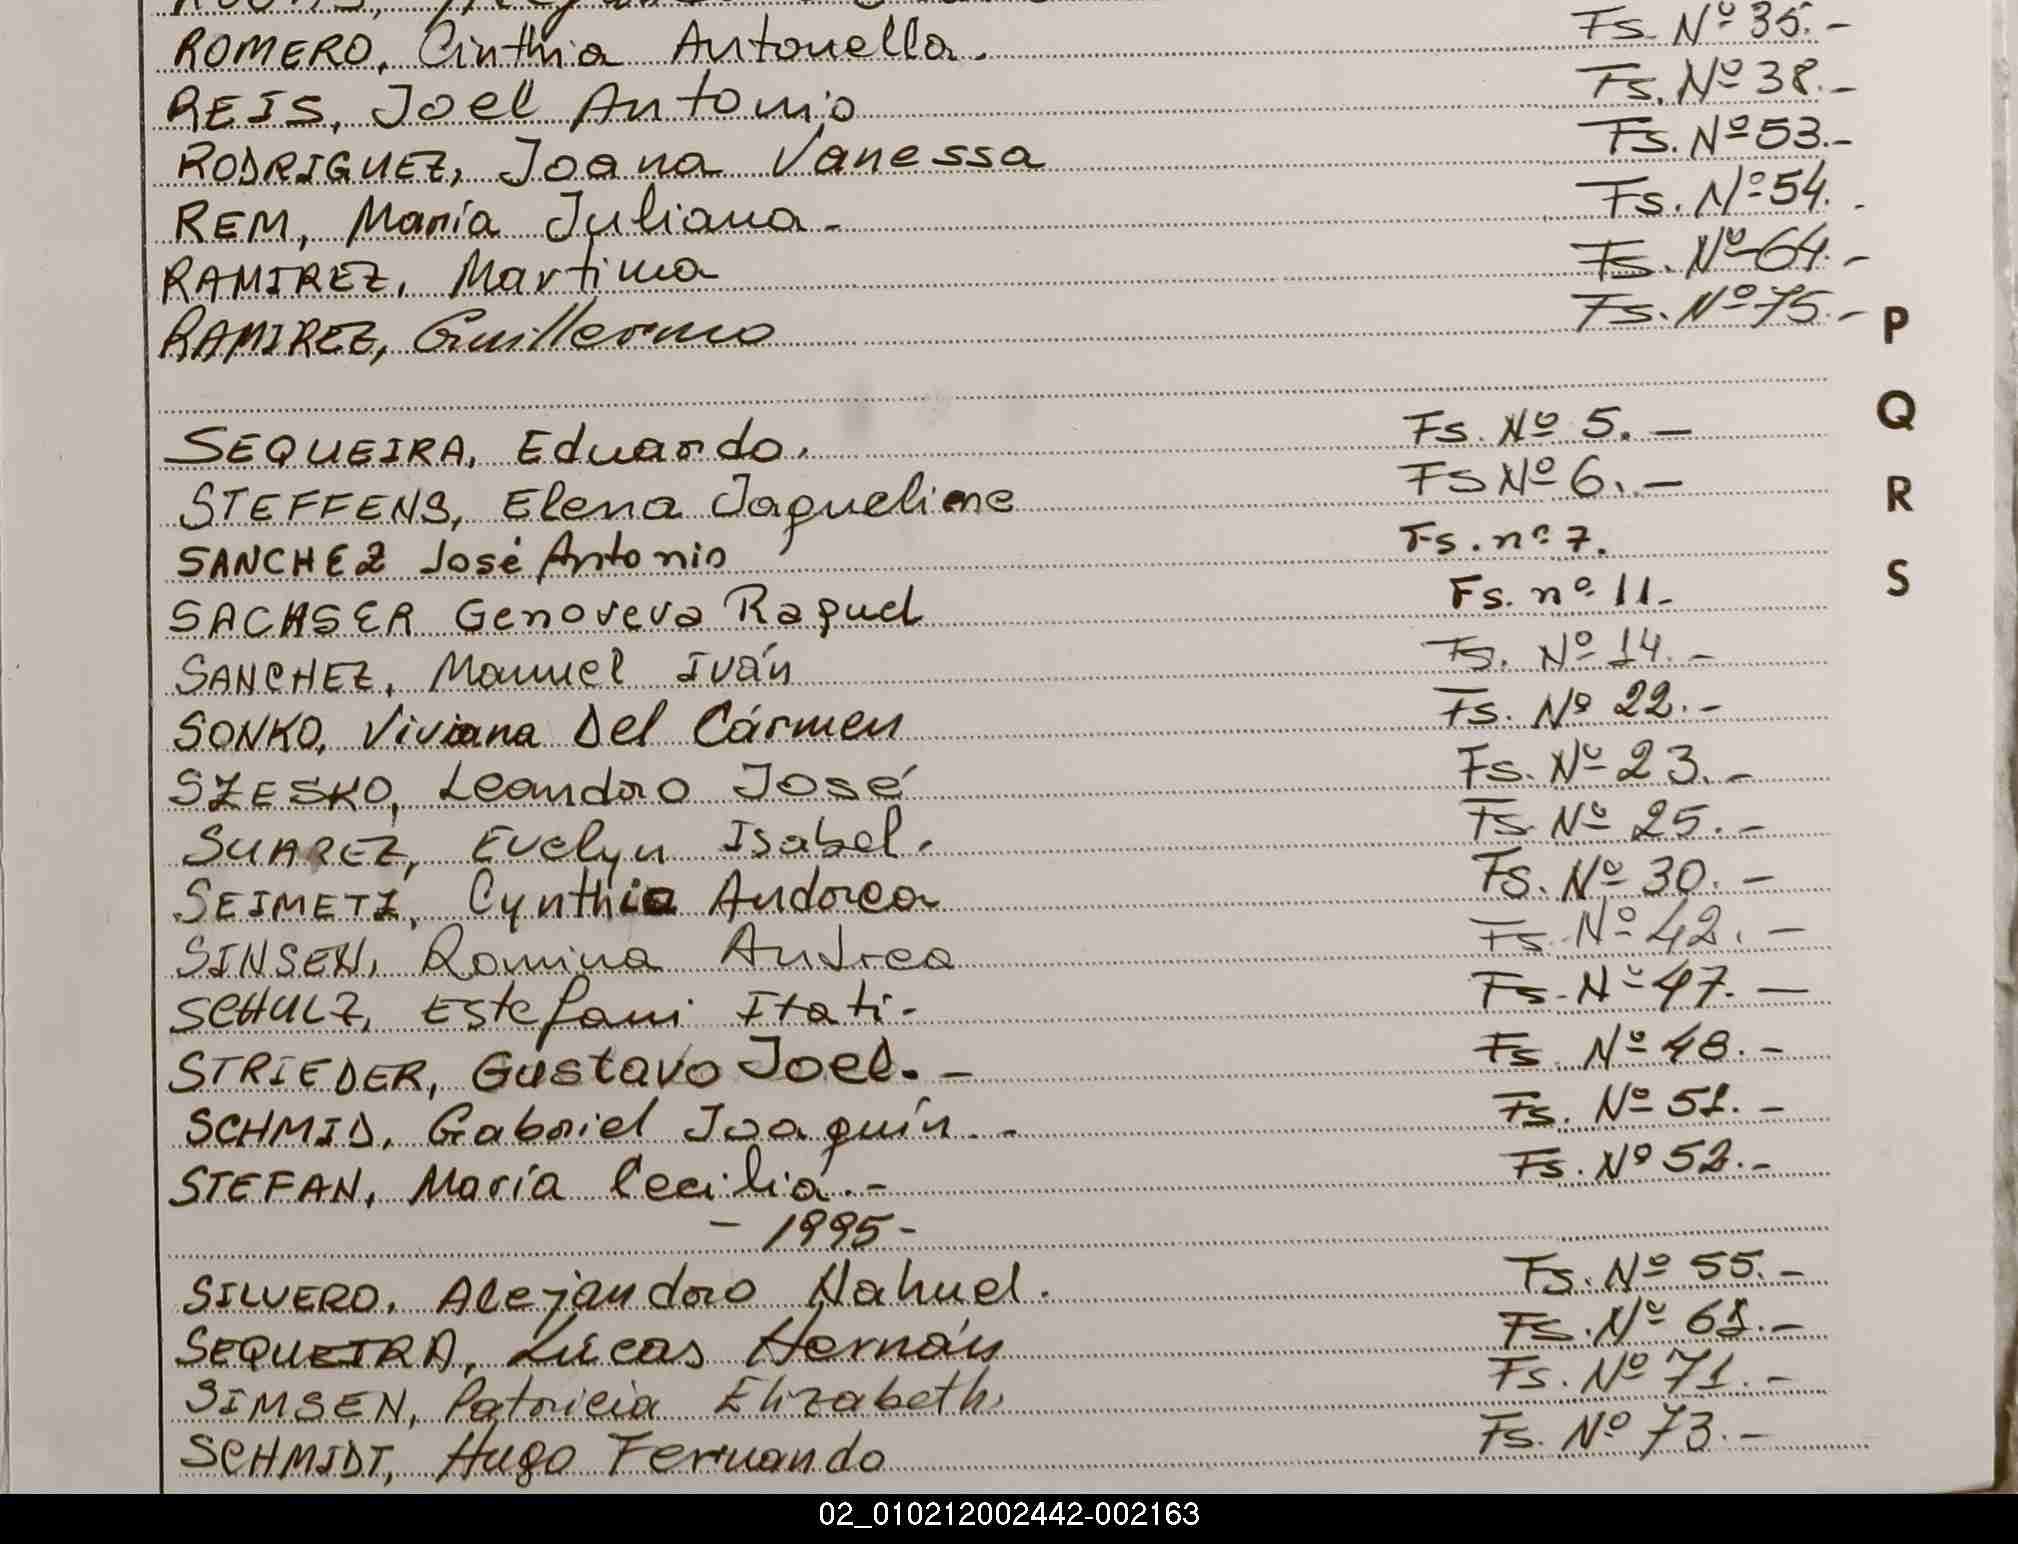 ROMERO, Cinthia Antonella. Fs. Nº 35.-
REIS, Joel Antonio Fs. Nº 38.-
RODRIGUEZ, Joana Vanessa Fs. Nº 53.-
REM, María Juliana.- Fs. Nº 54.-
RAMIREZ, Martina Fs. Nº 64.-
RAMIREZ, Guillermo Fs. Nº 75.-
P
Q
R
S
SEQUEIRA, Eduardo. Fs. Nº 5.-
STEFFENS, Elena Jaqueline Fs Nº 6.-
SANCHEZ José Antonio Fs. nº 7.
SACHSER Genoveva Raquel Fs. nº 11-
SANCHEZ, Manuel Iván Fs. Nº 14.-
SONKO, Viviana Del Cármen Fs. Nº 22.-
SZESKO, Leandro José Fs. Nº 23.-
SUAREZ, Evelyn Isabel. Fs. Nº 25.-
SEIMETZ, Cynthia Andrea Fs. Nº 30.-
SINSEN, Romina Andrea Fs. Nº 42.-
SCHULZ, Estefani Itati- Fs. Nº 47.-
STRIEDER, Gustavo Joel.- Fs. Nº 48.-
SCHMID, Gabriel Joaquín.- Fs. Nº 51.-
STEFAN, María Cecilia.- Fs. Nº 52.-
- 1995-
SILVERO, Alejandro Nahuel. Fs. Nº 55.-
SEQUEIRA, Lucas Hernán Fs. Nº 61.-
SIMSEN, Patricia Elizabeth. Fs. Nº 71.-
SCHMIDT, Hugo Fernando Fs. Nº 73.-
02_010212002442-002163